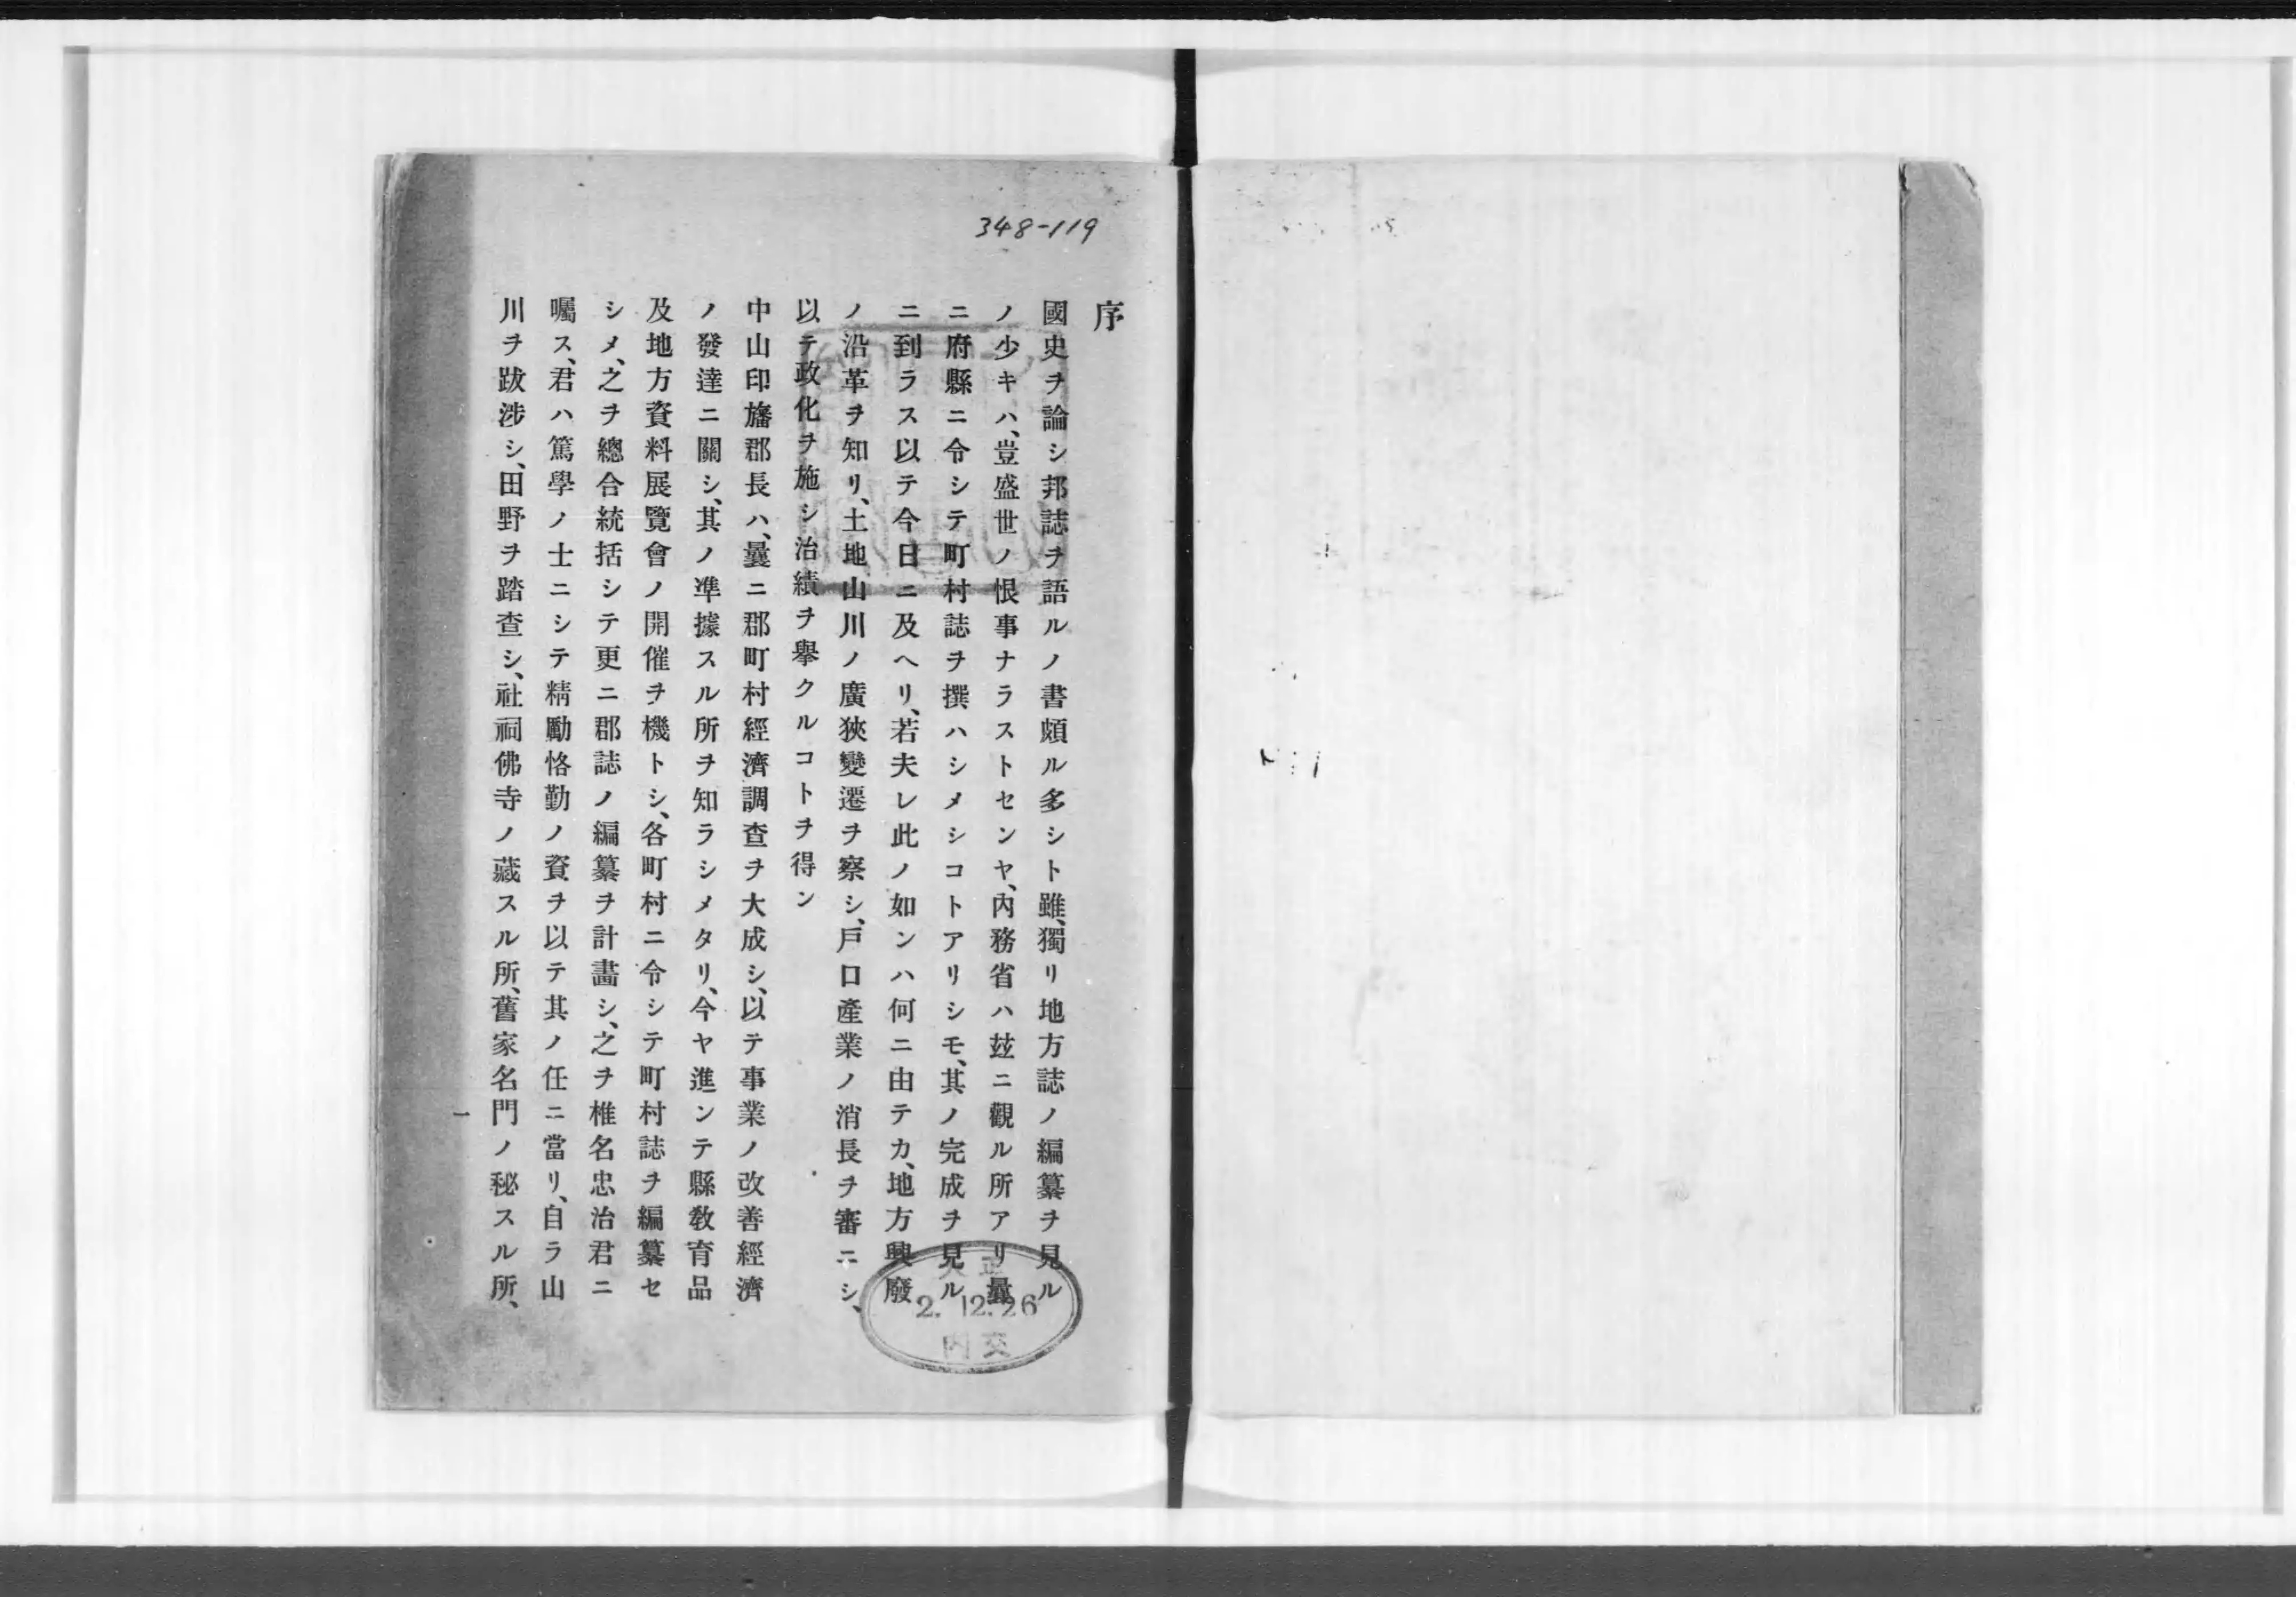 348-119
序
國史ヲ論シ邦誌ヲ語ルノ書頗ル多シト雖、獨リ地方誌ノ編纂ヲ見ル
ノ少キハ、豈盛世ノ恨事ナラストセンヤ、內務省ハ玆ニ觀ル所アリ曩
ニ府縣ニ令シテ町村誌ヲ撰ハシメシコトアリシモ、其ノ完成ヲ見ル
ニ到ラス以テ今日ニ及ヘリ、若夫レ此ノ如ンハ何ニ由テカ、地方興廢
ノ沿革ヲ知リ、土地山川ノ廣狹變遷ヲ察シ、戶口產業ノ消長ヲ審ニシ、
以テ政化ヲ施シ治績ヲ擧クルコトヲ得ン
中山印旛郡長ハ、曩ニ郡町村經濟調查ヲ大成シ、以テ事業ノ改善經濟
ノ發達ニ關シ、其ノ準據スル所ヲ知ラシメタリ、今ヤ進ンテ縣敎育品
及地方資料展覽會ノ開催ヲ機トシ、各町村ニ令シテ町村誌ヲ編纂セ
シメ、之ヲ總合統括シテ更ニ郡誌ノ編纂ヲ計畫シ、之ヲ椎名忠治君ニ
囑ス、君ハ篤學ノ士ニシテ精勵恪勤ノ資ヲ以テ其ノ任ニ當リ、自ラ山
川ヲ跋涉シ、田野ヲ踏查シ、社祠佛寺ノ藏スル所、舊家名門ノ秘スル所、
一
大正
2.12.26
內交